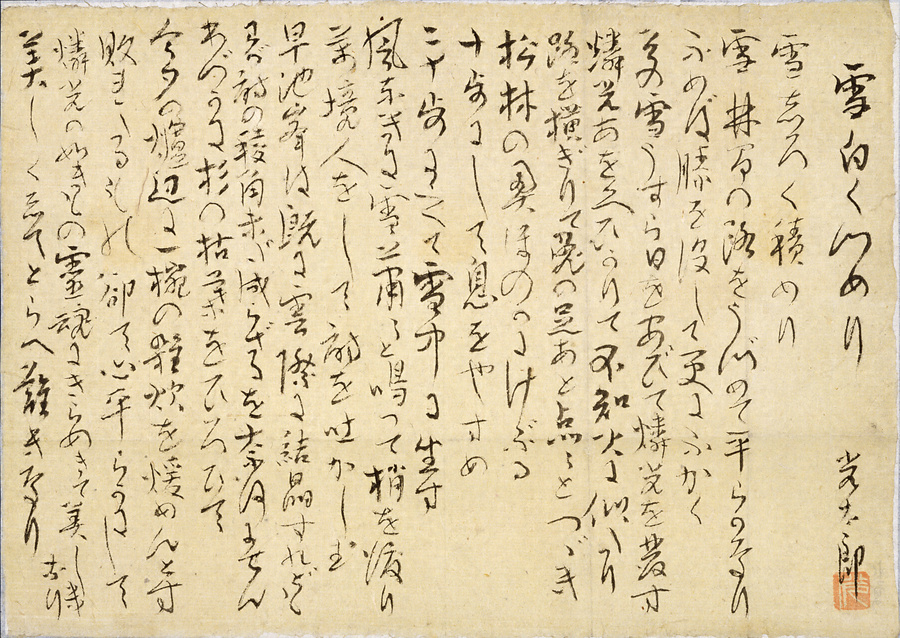 雪白くつめり
光太郎
雪しろく積めり
雪林間の路をうづめて平らかなり
ふめば膝を没して更にふかく
その雪うすら日をあびて燐光を発す
燐光あをくひかりて不知火に似たり
路を横ぎりて兎の足あと点々とつづき
松林の奥ほのかにけぶる
十歩にして息をやすめ
二十歩にして雪中に坐す
風なきに雪蕭々と鳴つて梢を渡り
萬境人をして詩を吐かしむ
早池峯は既に雲際に結晶すれども
わが詩の稜角未だ成らざるを奈何にせん
わづかに杉の枯葉をひろひて
今夕の爐辺に一椀の雑炊を煖めんとす
敗れたるもの卻て心平らかにして
燐光の如きもの霊魂にきらめきて美しき
なり
美しくしてとらへ難きなり